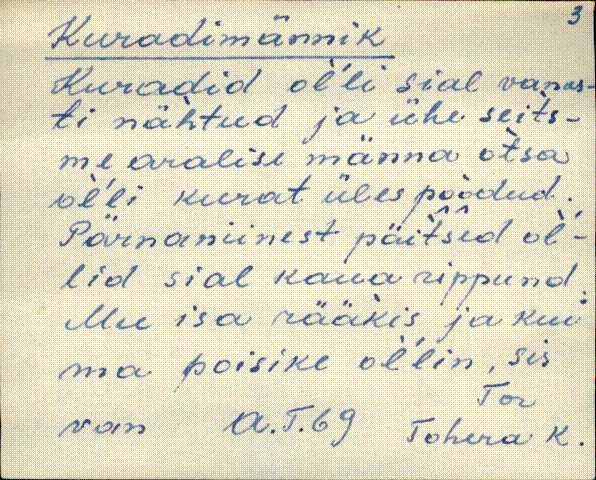 3
Kuradimännik
Kuradid ol'li sial vanas-
ti nähtud ja ühe seits-
me aralise männa otsa
ol'li kurat üles poodud.
Pärnaniinest päitsed ol'-
lid sial kaua rippund.
Mu isa rääkis, ja kui
ma poisike ol'lin, sis
van A.T.69 Tor
Tohera K.